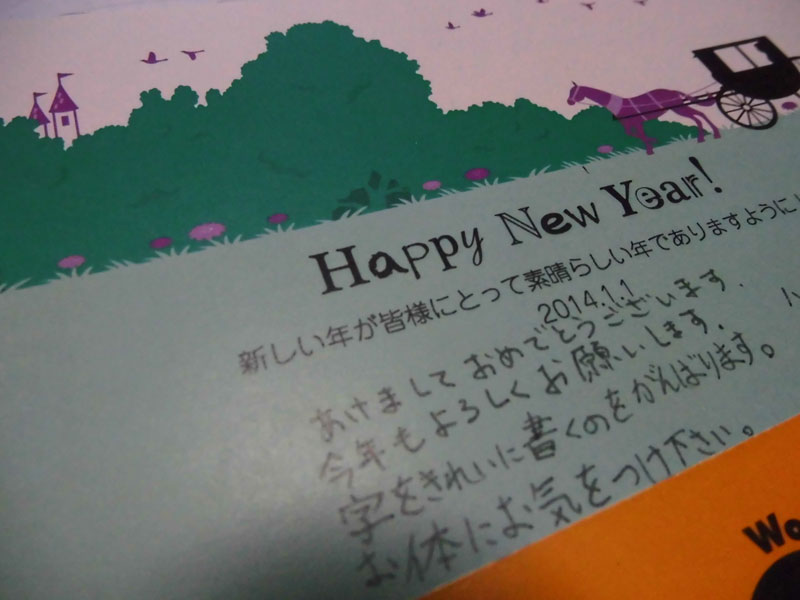 Happy New Year!
新しい年が皆様にとって素晴らしい年でありますように!
2014.1.1
あけましておめでとうございます.
今年もよろしくお願いします.
字をきれいに書くのをがんばります。
お体にお気をつけ下さい。